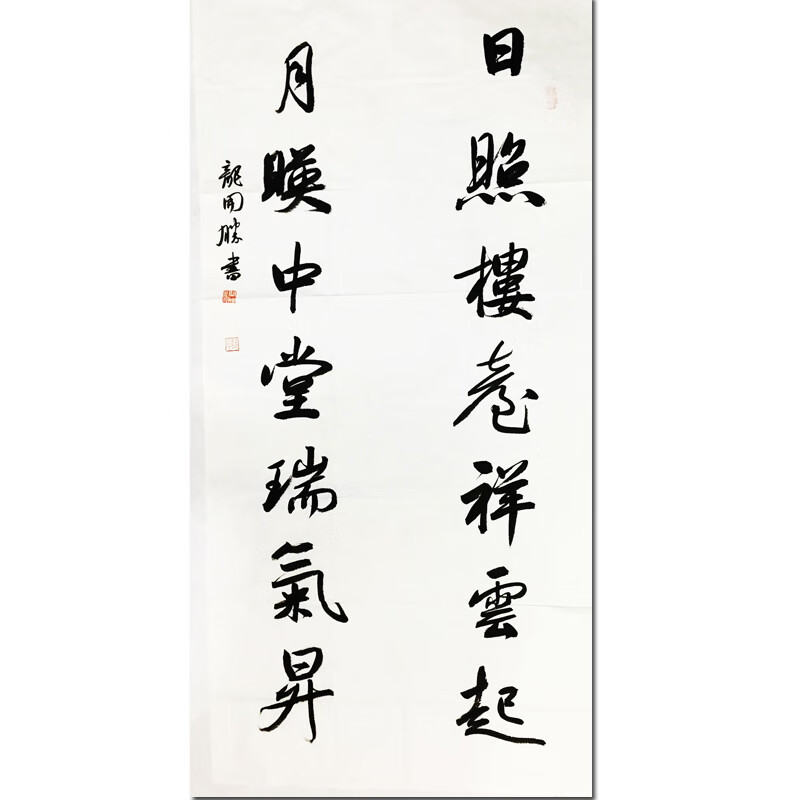 日照樓臺祥雲起
月暎中堂瑞氣昇
龍開勝書